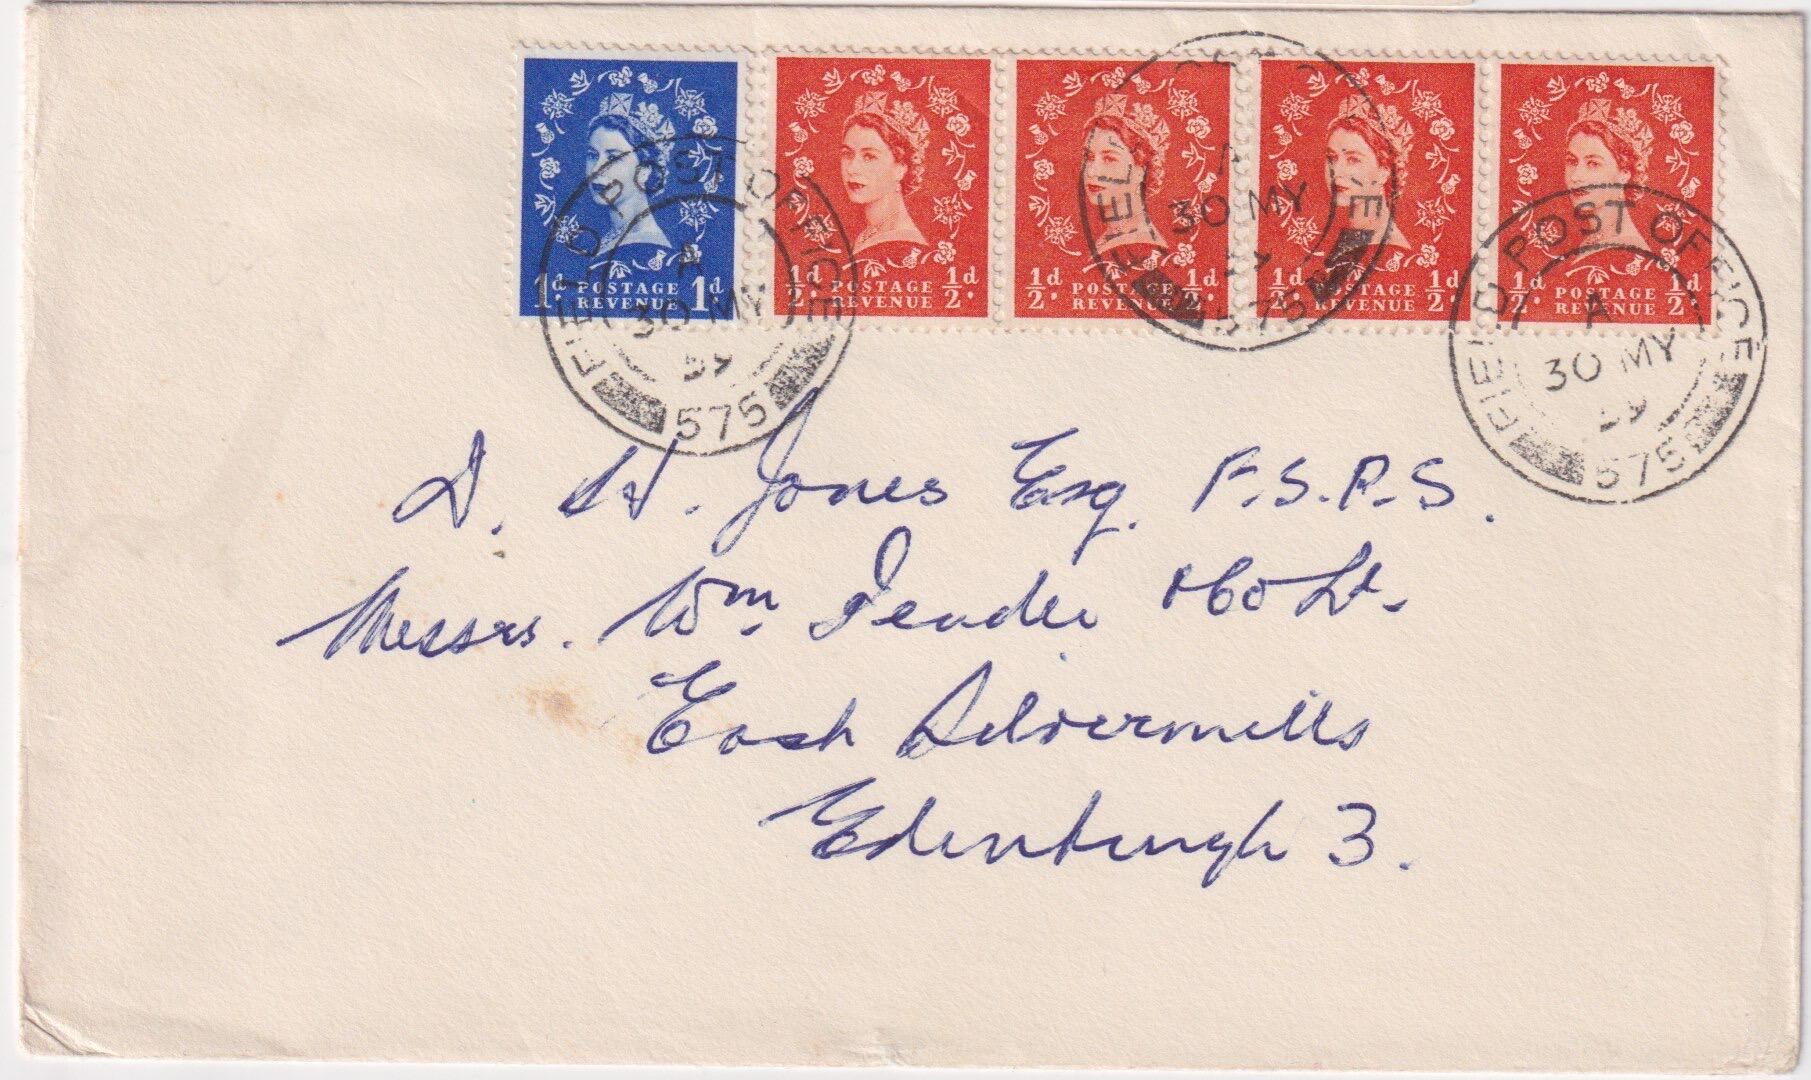 1d POSTAGE REVENUE 1d
½d POSTAGE REVENUE ½d
½d POSTAGE REVENUE ½d
½d POSTAGE REVENUE ½d
½d POSTAGE REVENUE ½d
FIELD POST OFFICE
A
30 MY
59
575
FIELD POST OFFICE
A
30 MY
59
575
FIELD POST OFFICE
A
30 MY
59
575
D. H. Jones Esq. F.S.P.S.
Messrs. Wm. &Co Lt.
East Silvermills
Edinburgh 3.